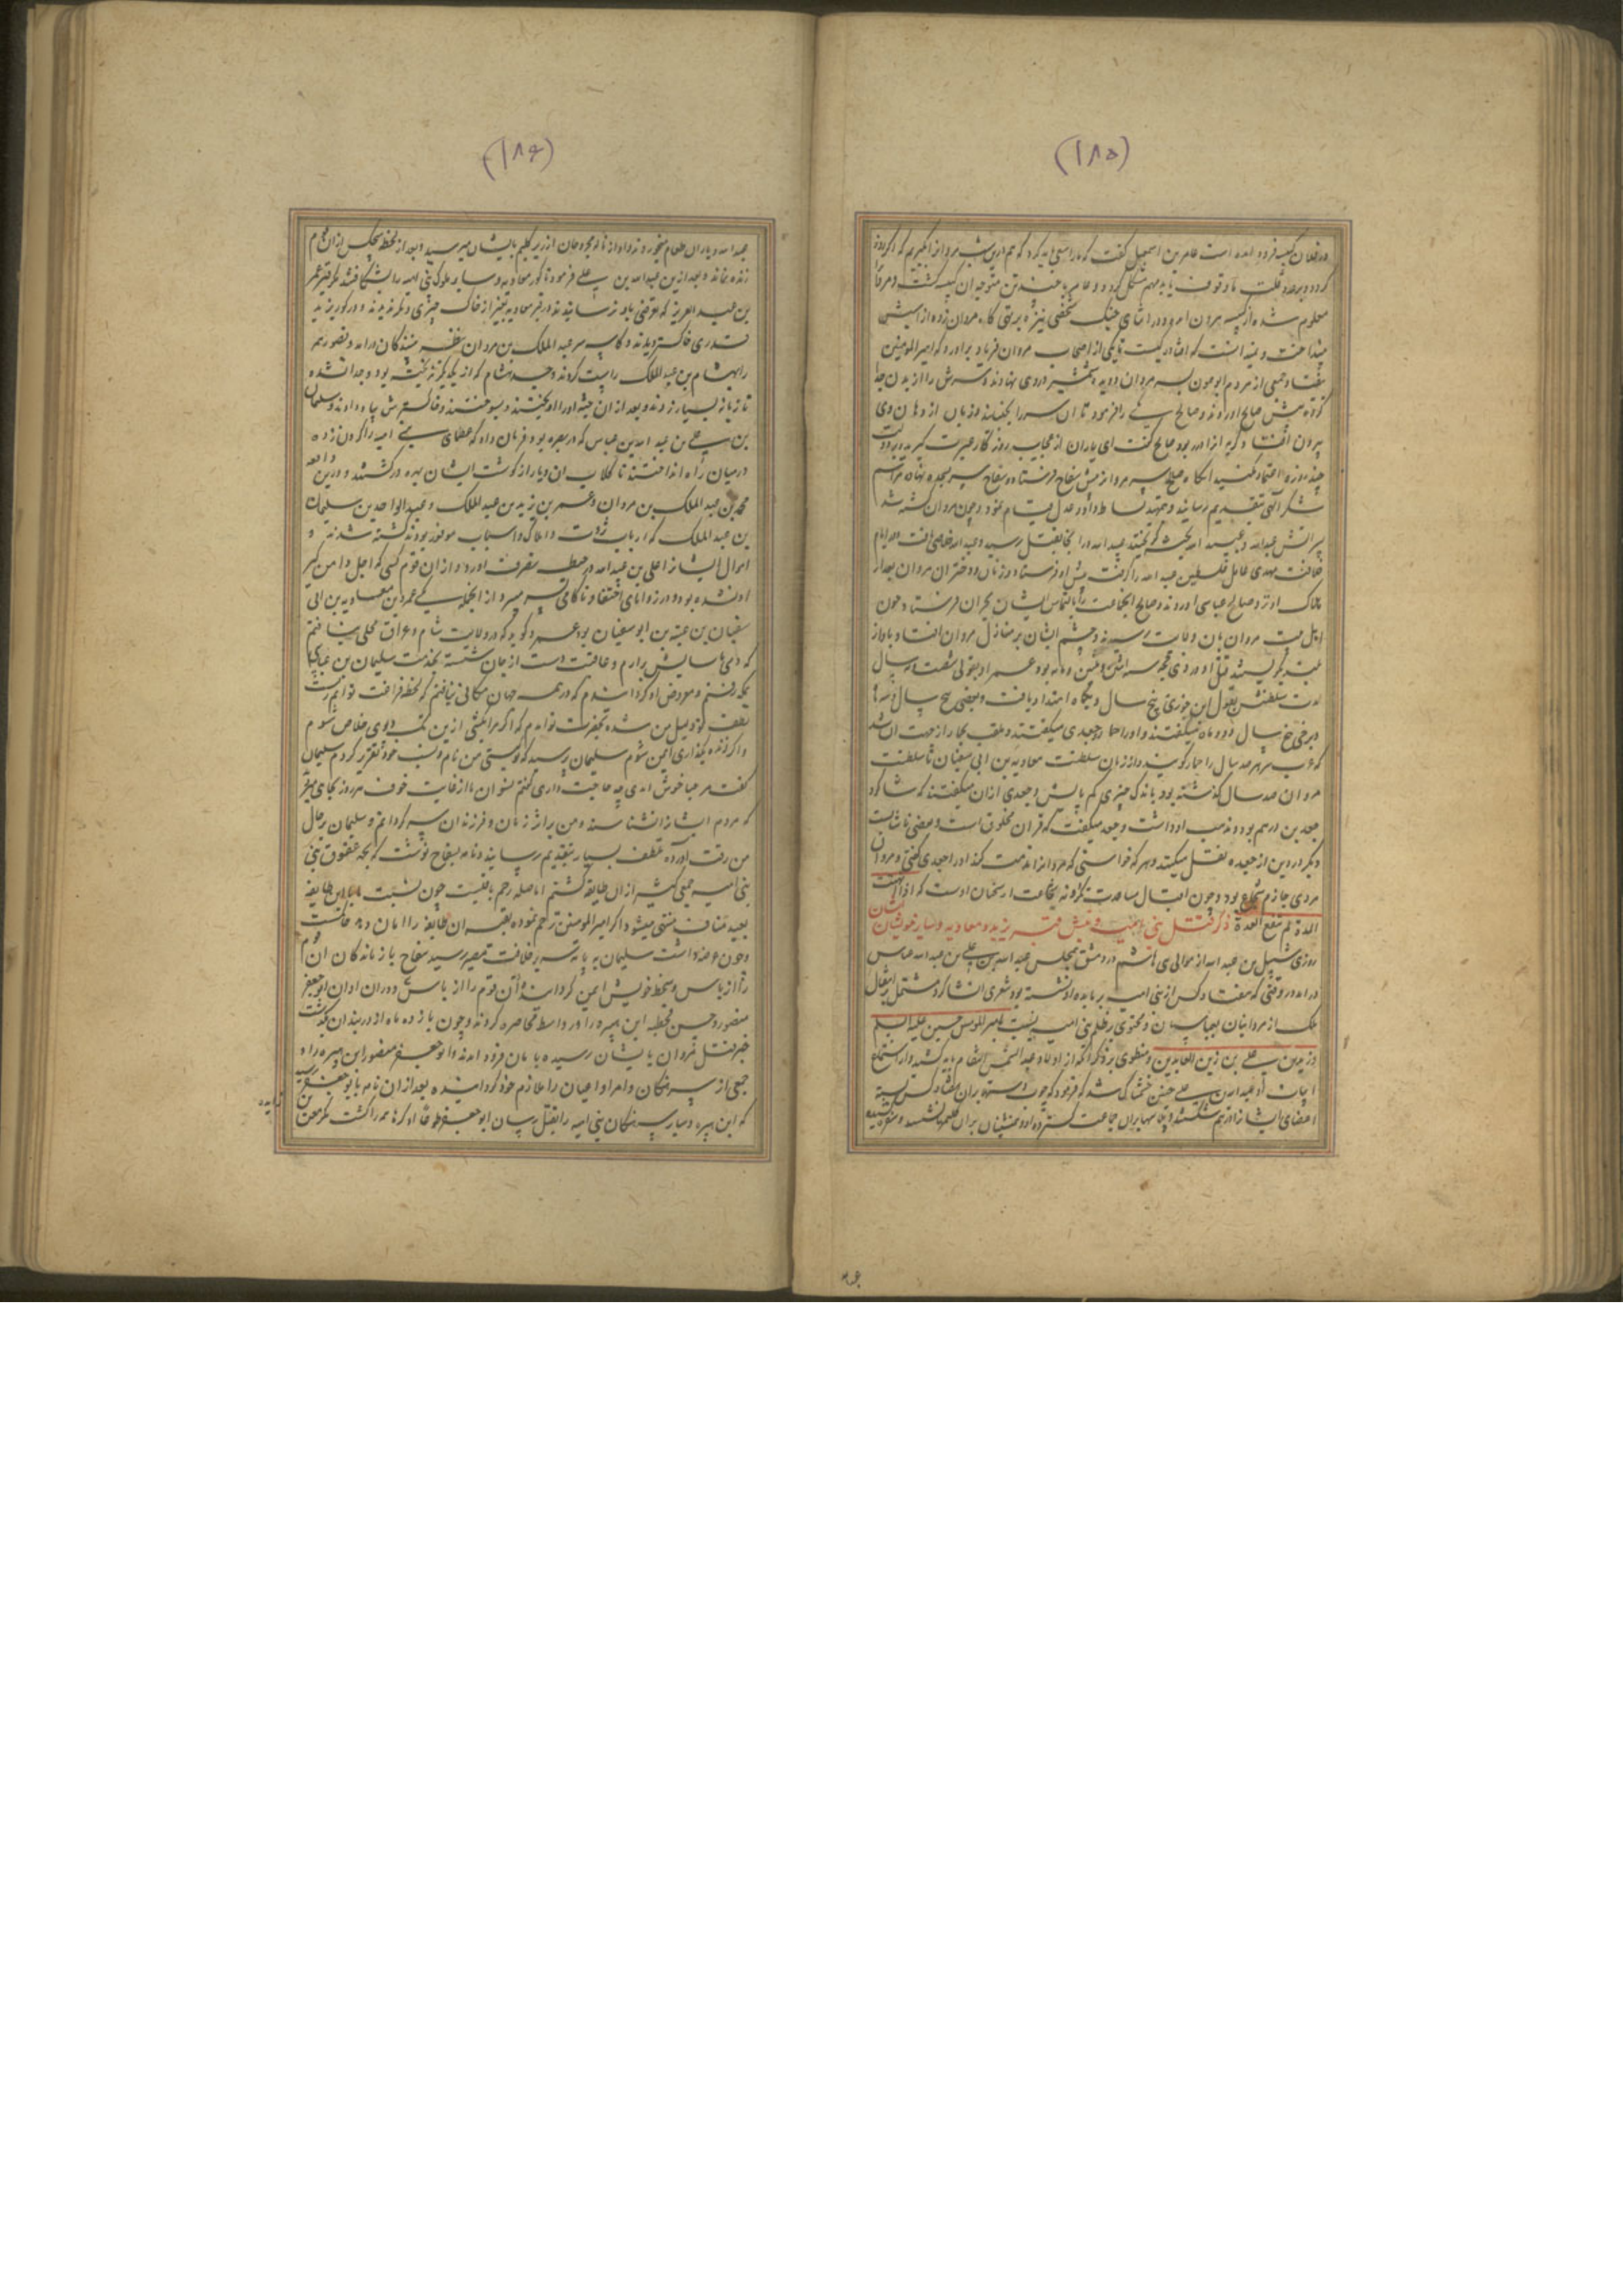 (۱۸۵)
در فلان کنیسه فرود آمده است عامر بن اسمعیل گفت که ما را سعی باید کرد که هم درین شب مروان را بگیریم که اگر روز
گردد و بر عدد و قلت ما وقوف یابد مهم مشکل گردد و عامر با چند تن متوجه آن کنیسه گشت و مروان
معلوم شده از کنیسه بیرون آمد و در اثنای جنگ شخصی نیزه بر تهی گاه مروان زده از اسبش
بینداخت و نمیدانست که افتاده کیست تا یکی از اصحاب مروان فریاد برآورد که امیر المومنین
بیفتاد و جمعی از مردم ابو عون بسر مروان دویده شمشیر در وی نهادند و سرش را از بدن جدا
کرده پیش صالح آوردند و صالح یکی را فرمود تا آن سر را بجنباند و زبان از دهان وی
بیرون افتاد و گربه آنرا در ربود صالح گفت ای یاران از عجایب روزگار عبرت گیرید و بر دولت
چند روزه اعتماد مکنید آنگاه صالح سر مروان پیش سفاح فرستاد و سفاح سر بسجده نهاده مراسم
شکر الهی بتقدیم رسانید و جهت بساط داد و عدل قیام نمود و چون مروان کشته شد
پسرانش عبدالله و عبیدالله بحبشه گریختند عبیدالله در آنجا بقتل رسید و عبدالله خلاصی یافت و در ایام
خلافت مهدی عامل فلسطین عبدالله را گرفت پیش او فرستاد و زنان و دختران مروان بعد از
هلاک او نزد صالح عباسی آوردند و صالح آن جماعت را بالتماس ایشان بحران فرستاد و چون
اهل بیت مروان بآن ولایت رسیدند و چشم ایشان بر منازل مروان افتاد و بآواز
بلند بگریستند قتل او در ذی حجه سنه اثنی و ثلثین و مایه بود عمر او بقولی شصت و نه سال
مدت سلطنتش بقول ابن جوزی پنج سال و یکماه امتداد یافت و بعضی پنج سال و سه ماه
و برخی پنج سال و دو ماه میگفتند و او را حمار و جعدی میگفتند و ملقب بحمار از جهت آن شد
که عرب سر هر صد سال را حمار گویند و از زمان سلطنت معاویه بن ابی سفیان تا سلطنت
مروان صد سال گذشته بود باندک چیزی کم یا بیش و جعدی از آن میگفتند که شاگرد
جعد بن درهم بود و مذهب او داشت و جعد میگفت که قرآن مخلوق است و بعضی ناشایست
دیگر در دین از جعد نقل میکنند و هر که خواستی که مروان را مذمت کند او را جعدی گفتی و مروان
مردی حازم شجاع بود و چون اقبال مساعدت نکرد نه شجاعت از سخنان اوست که اذا انتهت
المدة لم تنفع العدة ذکر قتل بنی امیه و نبش قبر یزید و معاویه و سایر خویشان ایشان
روزی شبل بن عبدالله از موالی بنی هاشم در دمشق بمجلس عبدالله بن علی بن عبدالله عباس
در آمد در وقتی که هفتاد کس از بنی امیه بر مایده او نشسته بود شعری انشا کرد مشتمل بر انتقال
ملک از مروانیان بعباسیان و محتوی بر ظلم بنی امیه نسبت بامیر المومنین حسین علیه السلم
و زید بن علی بن زین العابدین و منطوی بر ذکر آنکه از اولاد عبد الشمس انتقام باید کشید و از استماع
ابیات او عبدالله بن علی چنین خشمناک شد که فرمود که چوب داسته بر آن هفتاد کس بسته
اعضای ایشان را در هم شکستند و پلاسها بر آن جماعت گسترده او و همنشینان بر آن گلیم نشستند و سفره کشیده
(۱۸۶)
عبدالله و یاران طعام میخوردند و آواز ناله مجروحان از زیر گلیم بایشان میرسید و بعد از لحظه هیچکس از آن قوم
زنده نماند و بعد ازین عبدالله بن علی فرمود تا گور معاویه و سایر ملوک بنی امیه را بشکافتند مگر قبر عمر
بن عبدالعزیز که تعرضی باو نرسانیدند و در قبر معاویه بغیر از خاک چیزی دیگر ندیدند و در گور یزید
قدری خاکستر دیدند و کاسه سر عبدالملک بن مروان بنظر بینندگان در آمد و تصویر
را هشام بن عبدالملک راست کردند و جسد هشام که از یکدیگر نریخته بود و جدا نشده
تازیانه بسیار زدند و بعد از آن جثه او را آویختند و بسوختند و خاکسترش بباد دادند و سلیمان
بن علی بن عبدالله بن عباس که در بصره بود فرمان داد که عظمای بنی امیه را گردن زده
در میان راه انداختند تا کلاب آن دیار از گوشت ایشان بهره ور گشتند و درین واقعه
محمد بن عبدالملک بن مروان و عمر بن یزید بن عبدالملک و عبدالواحد بن سلیمان
بن عبدالملک که ارباب ثروت و املاک و اسباب موفور بودند کشته شدند و
اموال ایشان را علی بن عبدالله در حیطه تصرف آورد و از آن قوم کسی که اجل دامن گیر
او نشده بود و در زوایای اختفا و ناکامی بسر میبرد از آنجمله یکی عمرو بن معاویه بن
سفیان بن عتبه بن ابو سفیان بود عمرو گوید که در ولایت شام و عراق محلی نیافتم
که دمی بآسایش برآرم و عاقبت دست از جان شسته بخدمت سلیمان بن عباسی
رفتم و معروض او گردانیدم که در همه جهان مکانی نیافتم که لحظه فراغت توانم زیست
لطف تو دلیل من شده بحضرت تو آمدم که اگر مرا بکشی ازین خلاص شوم
و اگر زنده بگذاری ایمن شوم سلیمان پرسید که تو کیستی من نام و نسب خود تقریر کردم سلیمان
گفت مرحبا خوش آمدی چه حاجت داری گفتم نسوان ما از غایت خوف هر روز بجای میروند
که مردم ایشان را نشناسند و من برای زنان و فرزندان سرگردانم و سلیمان بر حال
من رقت آورده تلطف بسیار بتقدیم رسانید و نامه بسفاح نوشت که بجهت عقوق بنی
بنی امیه جمعی کثیر از آن طایفه کشتیم اما صله رحم باقیست چون نسبت ما باین طایفه
بعبد مناف منتهی میشود اگر امیر المومنین ترحم نموده بقیه آن طایفه را امان دهد
و چون عرضداشت سلیمان به پایه سریر خلافت مصیر رسید سفاح بازماندگان آن قوم
را از باس و سخط خویش ایمن گردانید و آن قوم را از دوران اوان ابو جعفر
منصور و حسن قحطبه ابن هبیره را در واسط محاصره کردند و چون یازده ماه از دربندان گذشت
خبر قتل مروان بایشان رسیده بامان فرود آمدند و ابو جعفر منصور ابن هبیره را و
جمعی از سرهنگان و امرا و اعیان را ملازم خود گردانیده بعد از آن نامه بابو جعفر رسید
که ابن هبیره و سایر سرهنگان بنی امیه را بقتل رسان ابو جعفر طوعا او کرها همه را کشت مگر معن بن
زایده